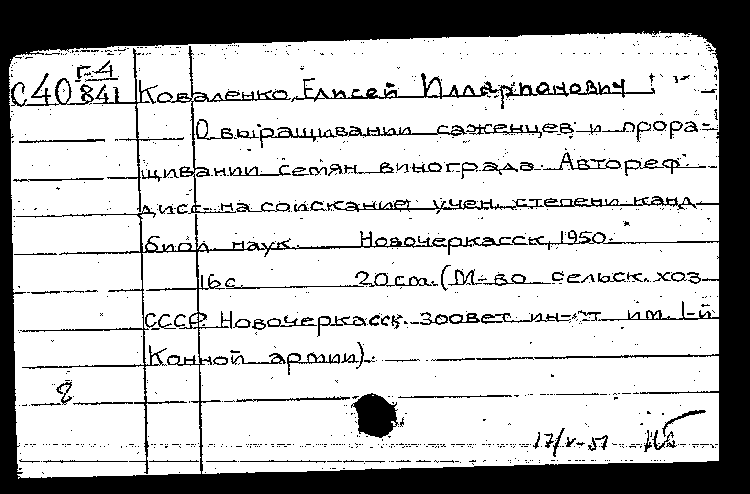 С40 Г-4/841 Коваленко, Елисей Илларионович
О выращивании саженцев и прора-
щивании семян винограда. Автореф
дисс. на соискание учен. степени канд.
биол. наук. Новочеркасск, 1950.
16 с. 20 cm. (М-во сельск. хоз
СССР. Новочеркасск. зоовет. ин-т им. 1-й
Конной армии).
8
17/V-51